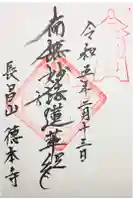 令和五年三月十三日
南無妙法蓮華経
長昌山 徳本寺